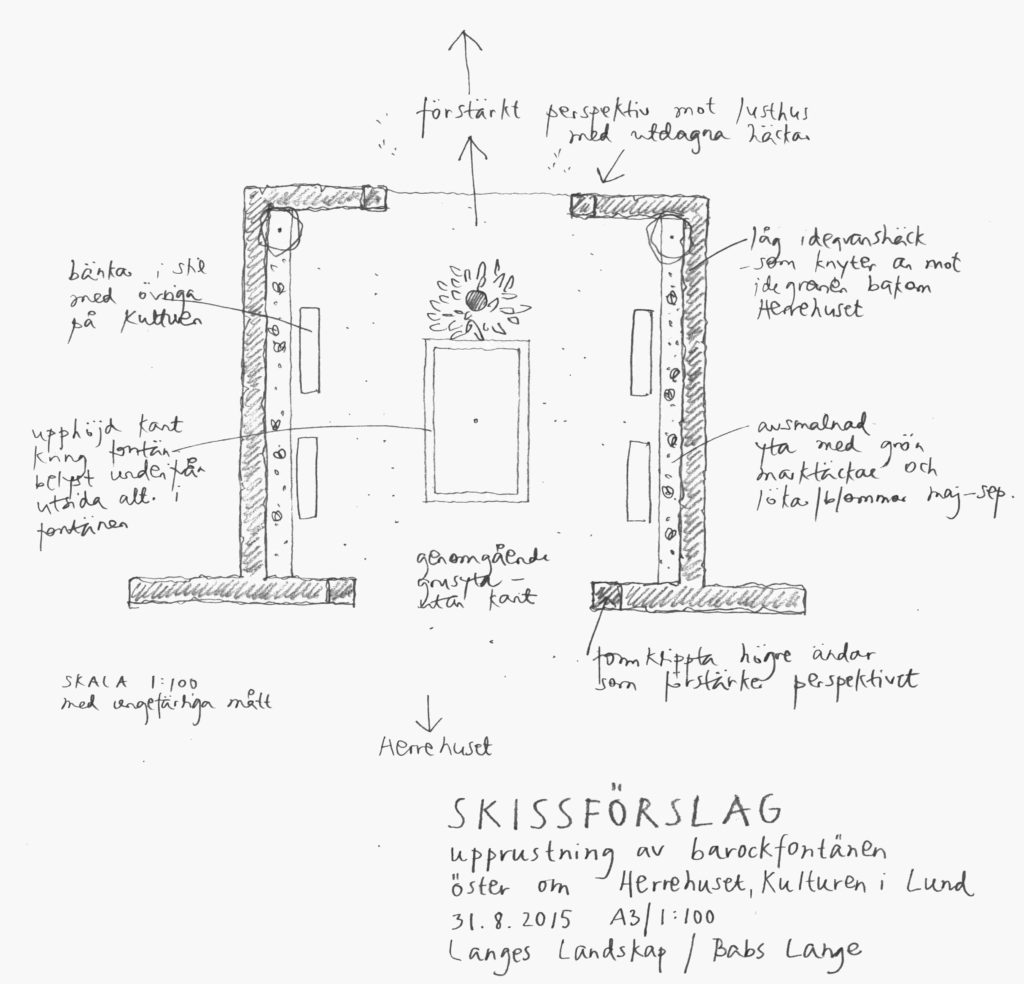 förstärkt perspektiv mot lusthus
med utdagna häckar
låg idegranshäck
som knyter an mot
idegranen bakom
Herrehuset
bänkar i stil
med övriga
på Kulturen
upphöjd kant
kring fontän
belyst underifrån
utsida alt. i
fontänen
avsmalnad
yta med grön
marktäckare och
lökar/blommar maj-sep.
genomgående
grusyta -
utan kant
formklippta högre ändar
som förstärker perspektivet
SKALA 1:100
med ungefärliga mått
Herrehuset
SKISSFÖRSLAG
upprustning av barockfontänen
öster om Herrehuset, Kulturen i Lund
31.8.2015 A3/1:100
Langes Landskap / Babs Lange